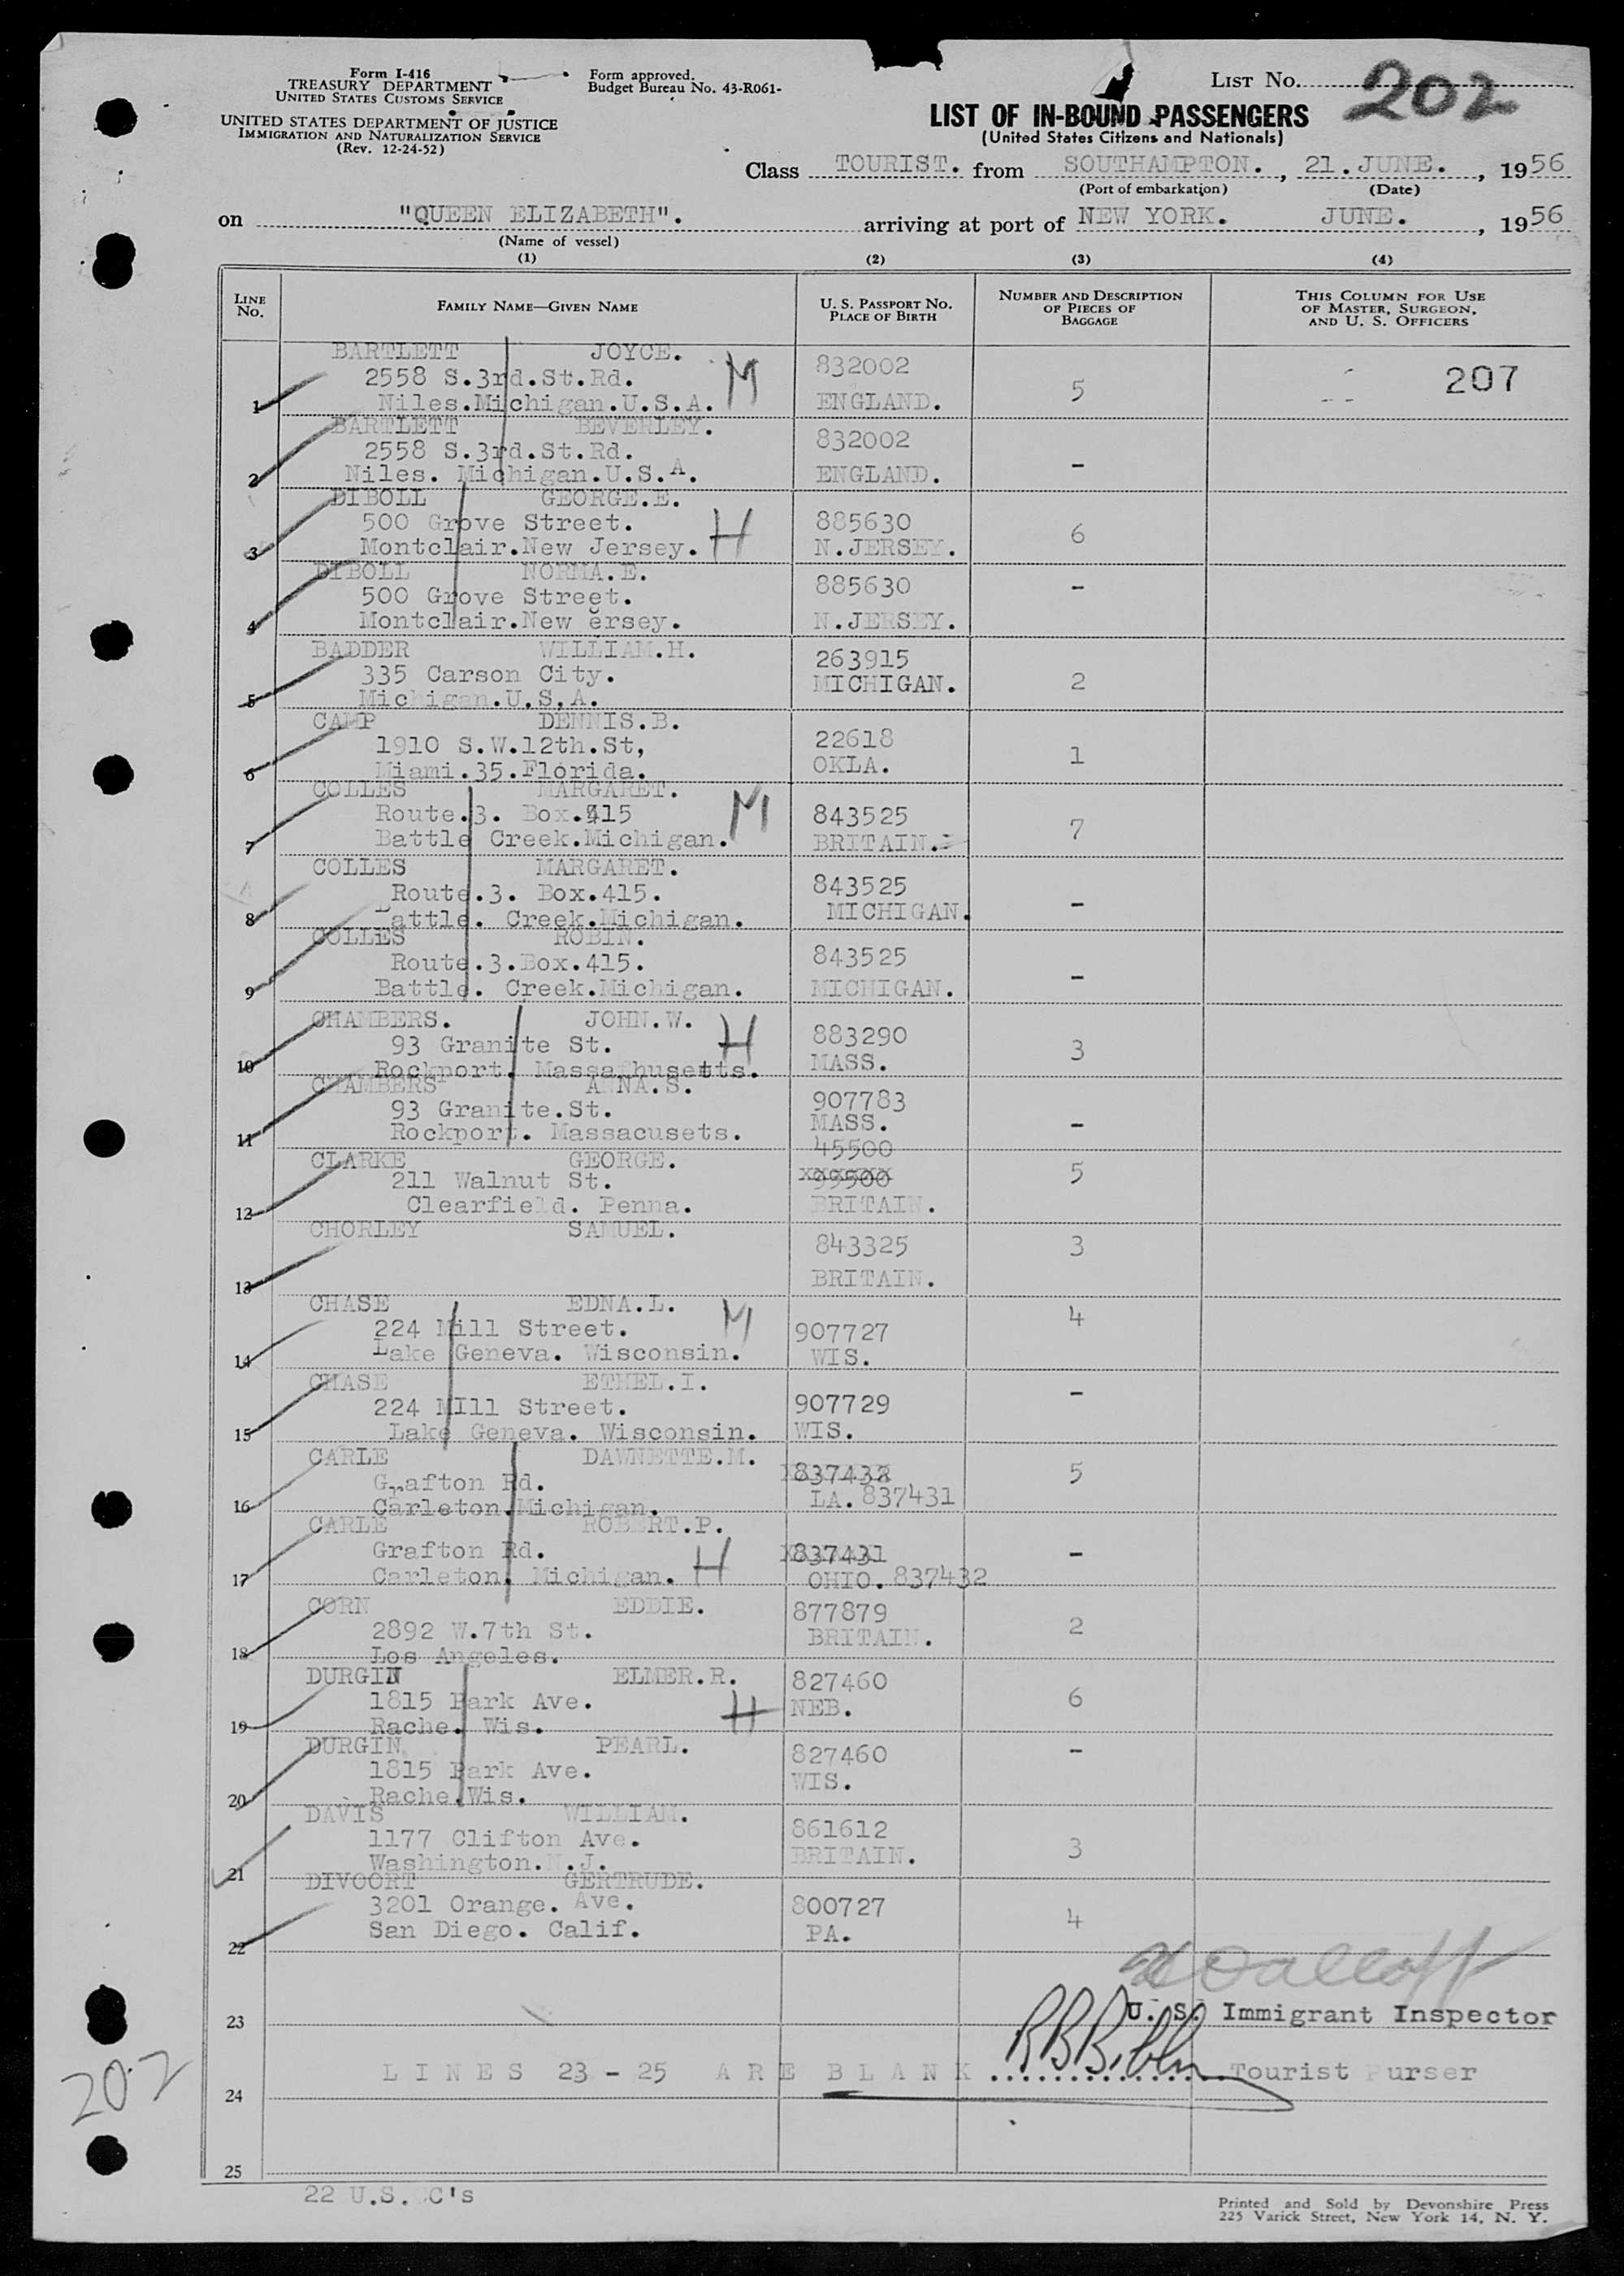 Form I-416
TREASURY DEPARTMENT
UNITED STATES CUSTOMS SERVICE
UNITED STATES DEPARTMENT OF JUSTICE
IMMIGRATION AND NATURALIZATION SERVICE
(Rev. 12-24-52)
Form approved.
Budget Bureau No. 43-R061-
LIST NO. 202
LIST OF IN-BOUND PASSENGERS
(United States Citizens and Nationals)
Class TOURIST. from SOUTHAMPTON. , 21.JUNE. , 1956
(Port of embarkation) (Date)
on "QUEEN ELIZABETH". arriving at port of NEW YORK. JUNE. , 1956
(Name of vessel)
(1) (2) (3) (4)
LINE NO. FAMILY NAME—GIVEN NAME U. S. PASSPORT NO. PLACE OF BIRTH NUMBER AND DESCRIPTION OF PIECES OF BAGGAGE THIS COLUMN FOR USE OF MASTER, SURGEON, AND U. S. OFFICERS
BARTLETT JOYCE. M 832002 207
2558 S.3rd.St.Rd. 5
1 Niles.Michigan.U.S.A. ENGLAND.
BARTLETT BEVERLEY. 832002
2558 S.3rd.St.Rd. -
2 Niles. Michigan.U.S.A. ENGLAND.
DIBOLL GEORGE.E.
500 Grove Street. H 885630 6
3 Montclair.New Jersey. N.JERSEY.
DIBOLL NORMA.E. 885630 -
500 Grove Street.
4 Montclair.New ersey. N.JERSEY.
BADDER WILLIAM.H. 263915
335 Carson City. MICHIGAN. 2
5 Michigan.U.S.A.
CAMP DENNIS.B. 22618
1910 S.W.12th.St, 1
6 Miami.35.Florida. OKLA.
COLLES MARGARET. M
Route.3. Box.415 843525 7
7 Battle Creek.Michigan. BRITAIN.
COLLES MARGARET. 843525
Route.3. Box.415. -
8 Battle. Creek.Michigan. MICHIGAN.
COLLES ROBIN. 843525
Route.3.Box.415. -
9 Battle. Creek.Michigan. MICHIGAN.
CHAMBERS. JOHN.W. H 883290
93 Granite St. 3
10 Rockport. Massachusetts. MASS.
CHAMBERS ANNA.S. 907783
93 Granite.St. MASS. -
11 Rockport. Massacusets.
CLARKE GEORGE. 45500
211 Walnut St. 99500 5
12 Clearfield. Penna. BRITAIN.
CHORLEY SAMUEL. 843325 3
13 BRITAIN.
CHASE EDNA.L. M 4
224 Mill Street. 907727
14 Lake Geneva. Wisconsin. WIS.
CHASE ETHEL.I. -
224 MIll Street. 907729
15 Lake Geneva. Wisconsin. WIS.
CARLE DAWNETTE.M. 837432 5
Grafton Rd.
16 Carleton.Michigan. LA. 837431
CARLE ROBERT.P.
Grafton Rd. H 837431 -
17 Carleton. Michigan. OHIO. 837432
CORN EDDIE. 877879
2892 W.7th St. BRITAIN. 2
18 Los Angeles.
DURGIN ELMER.R. 827460
1815 Park Ave. H NEB. 6
19 Rache. Wis.
DURGIN PEARL. 827460 -
1815 Park Ave. WIS.
20 Rache.Wis.
DAVIS WILLIAM. 861612
1177 Clifton Ave. 3
21 Washington.N.J. BRITAIN.
DIVOORT GERTRUDE.
3201 Orange. Ave. 800727 4
22 San Diego. Calif. PA.
U. S. Immigrant Inspector
23
LINES 23 - 25 ARE BLANK Tourist Purser
24
202
25
22 U.S. C's
Printed and Sold by Devonshire Press
225 Varick Street, New York 14, N. Y.